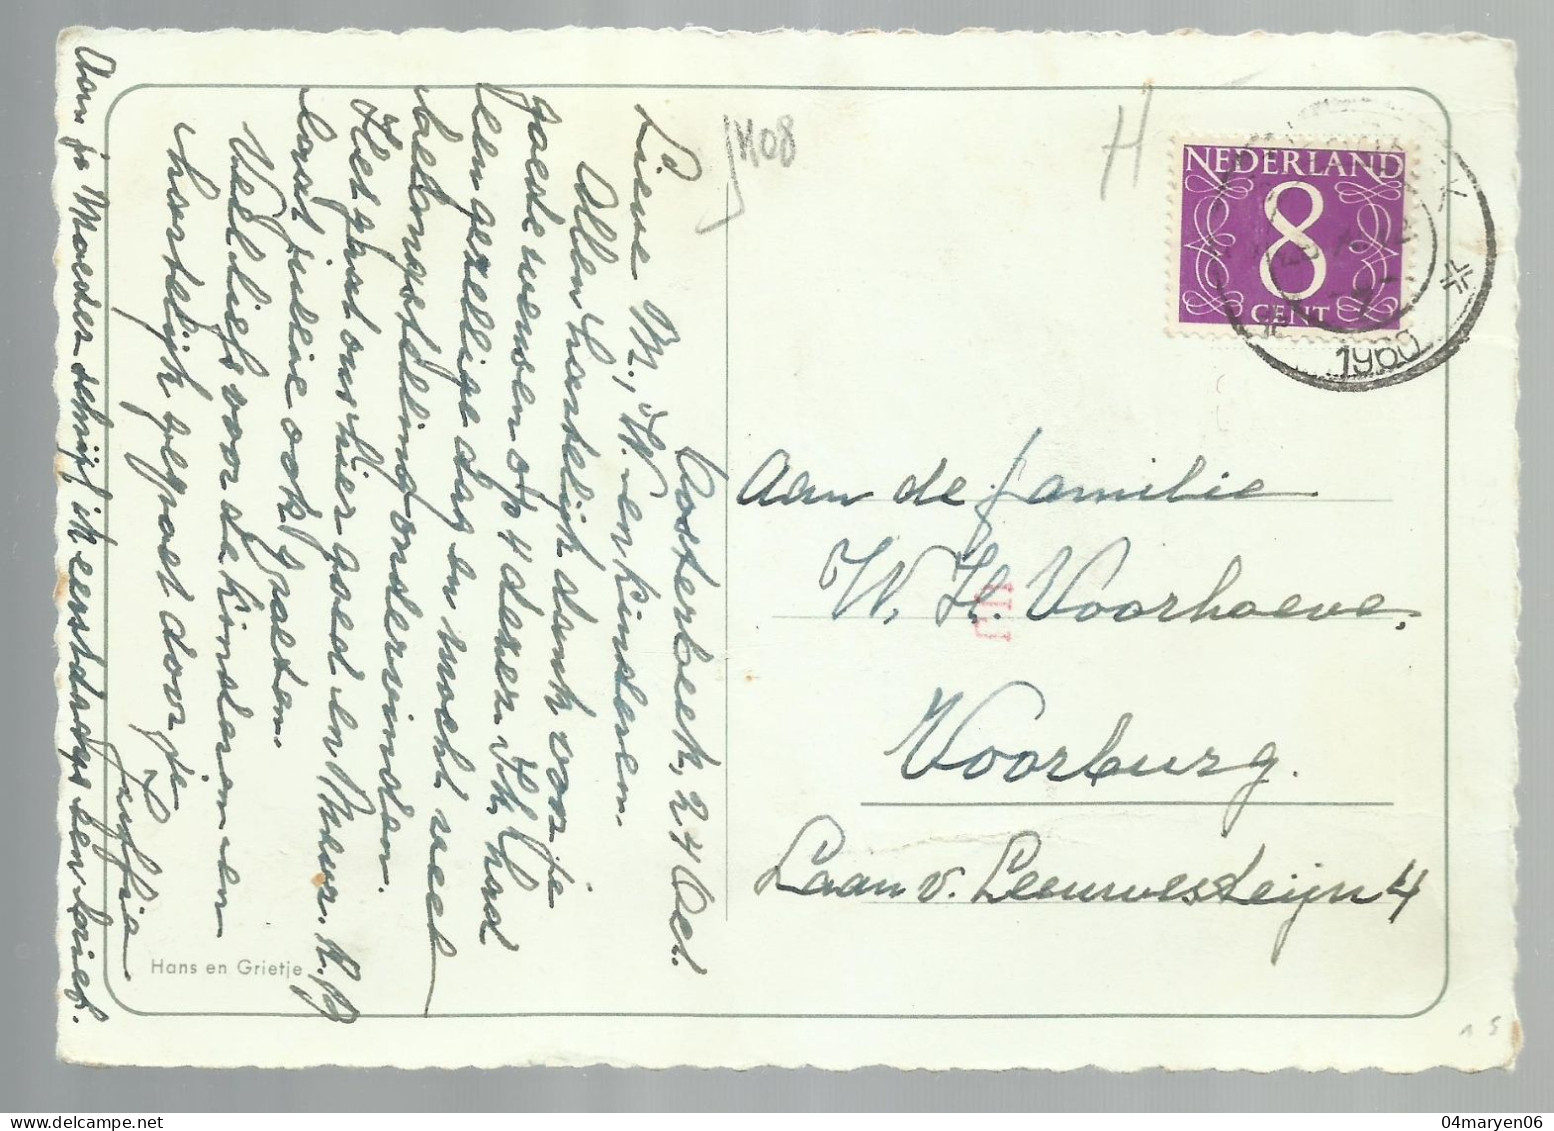 Oosterbeek, 24 Oct.
Lieve M., W. en kinderen.
Allen hartelijk dank voor je
goede wensen op 4 dezer. Ik had
een gezellige dag en mocht veel
belangstelling ondervinden.
Het gaat ons hier goed en
laat jullie ook
Veel liefs voor de kinderen en
hartelijk gegroet door je
Aan je Moeder schrijf ik eerstdaags een brief.
Hans en Grietje
1408
H
NEDERLAND
8
CENT
1960
Aan de familie
W. H. Voorhoeve.
Voorburg.
Laan v. Leeuwesteijn 4
04maryen06